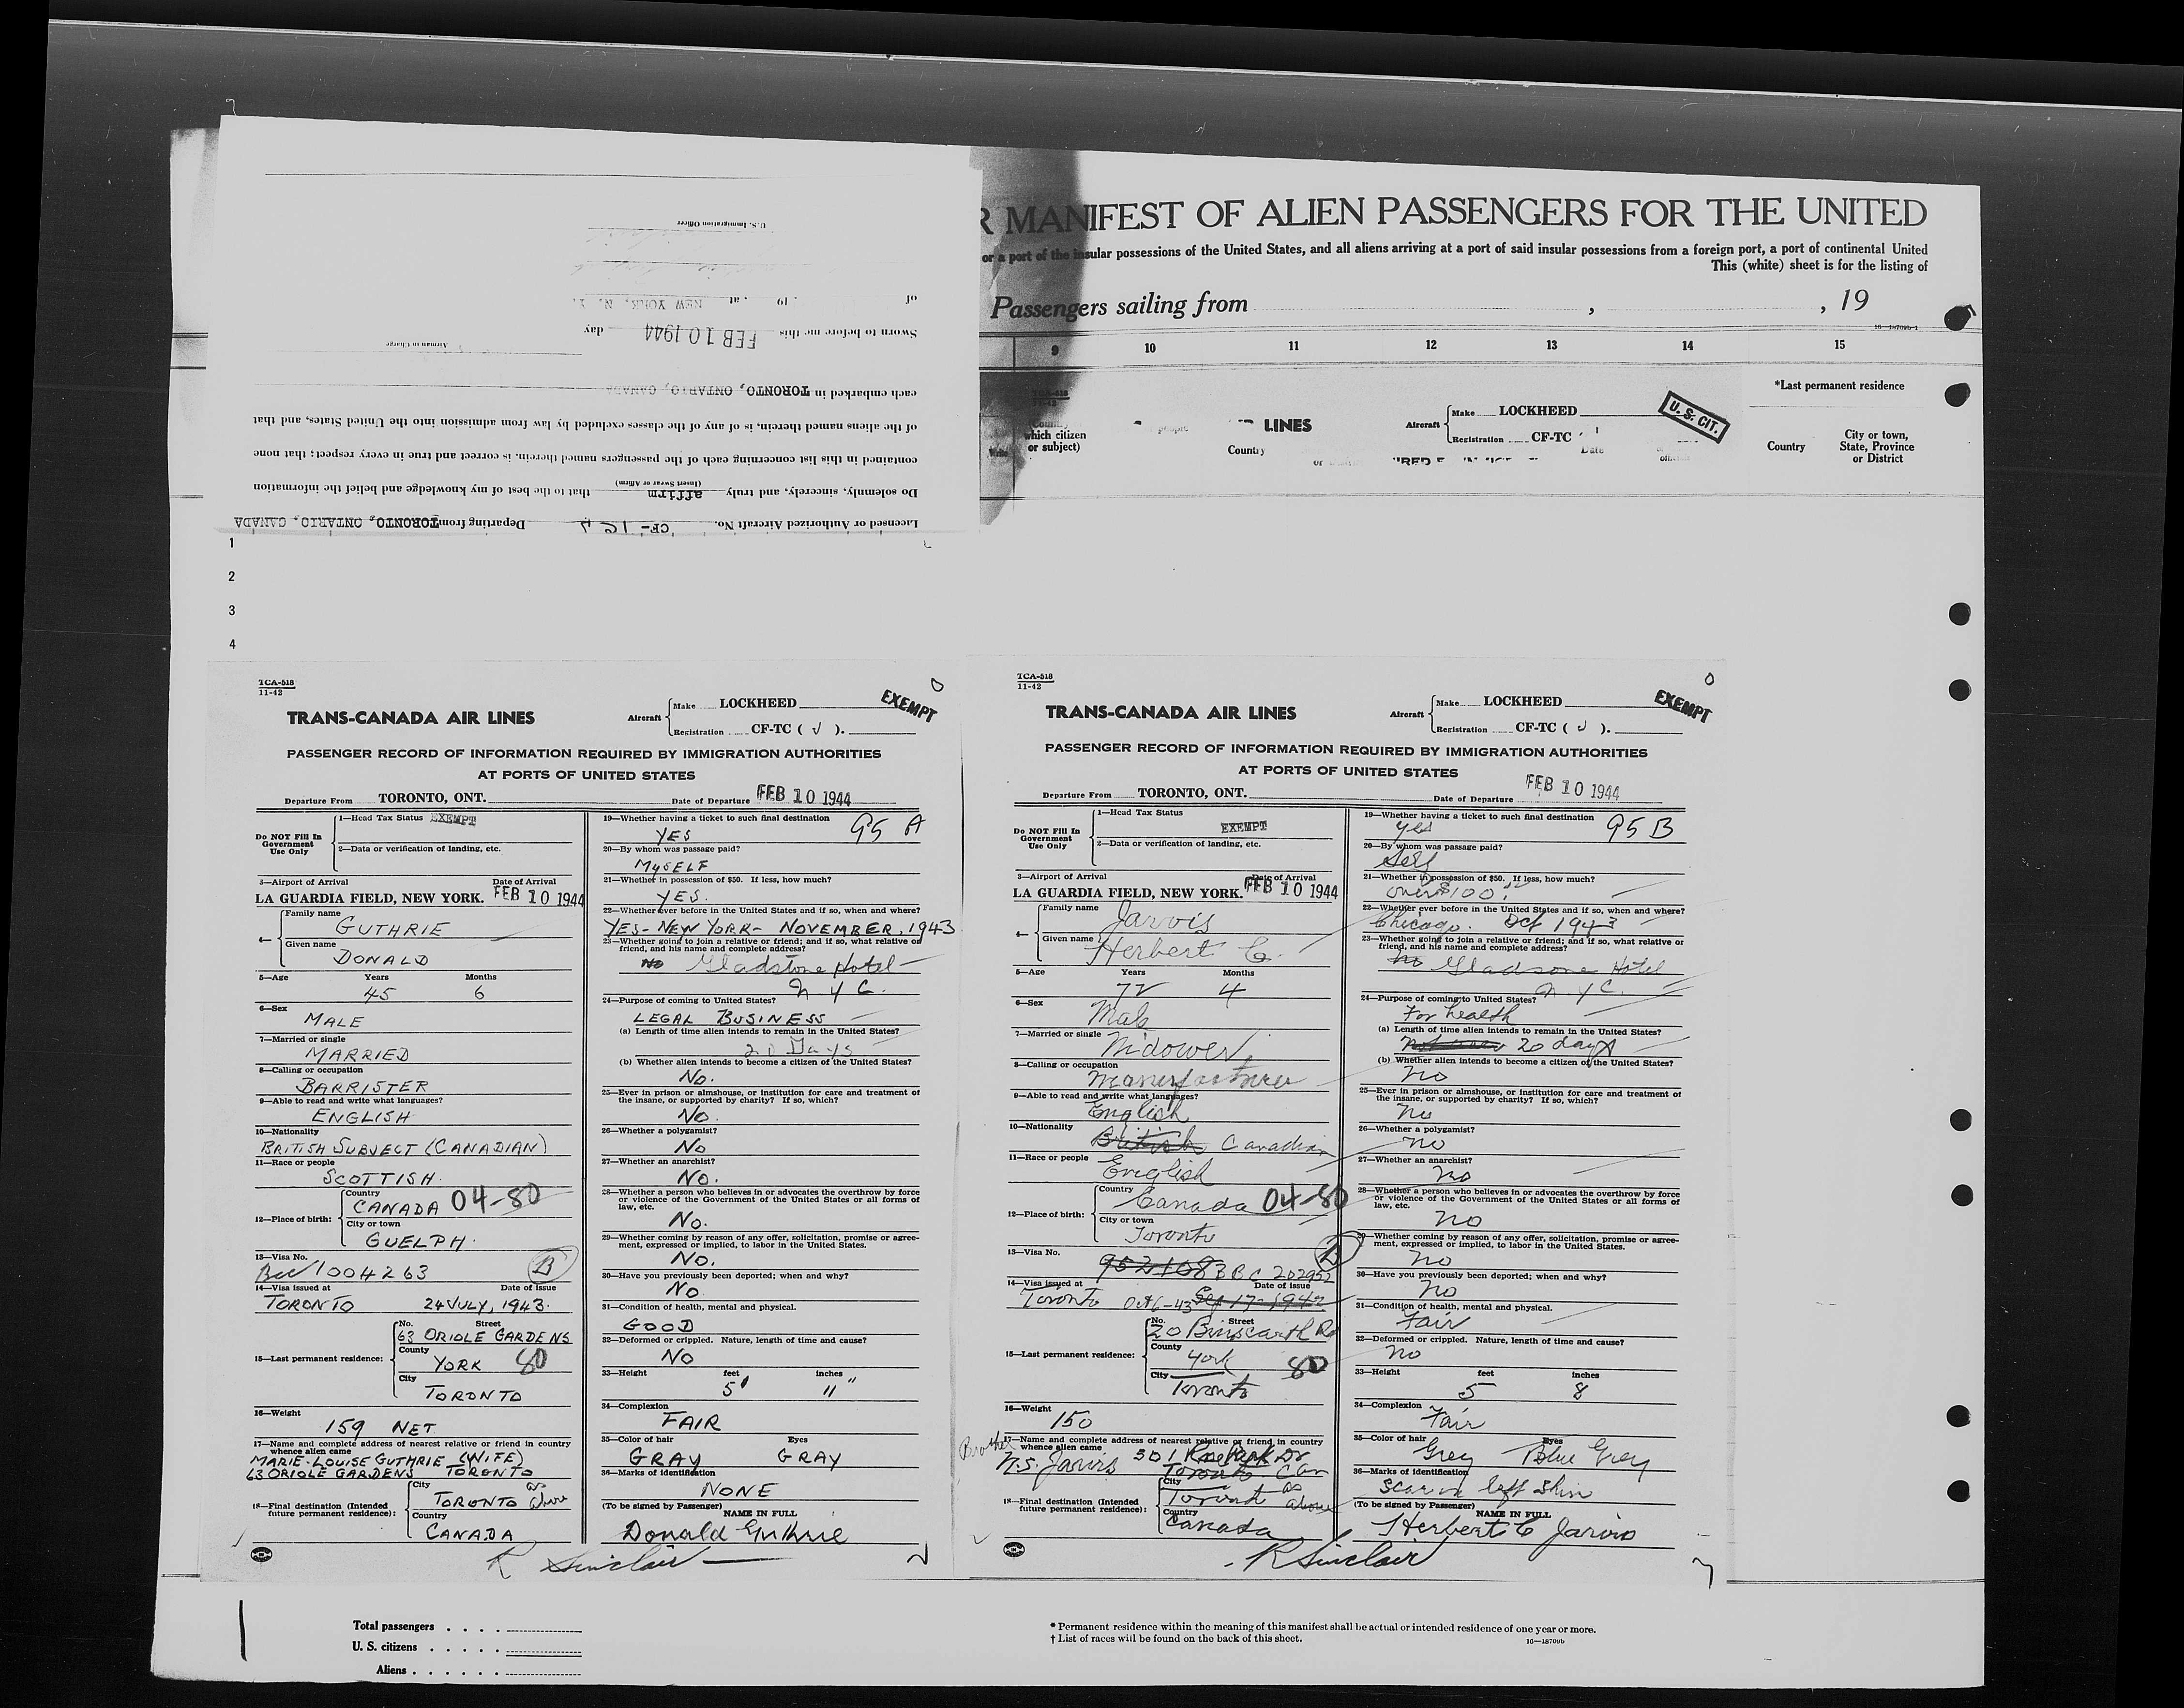 R MANIFEST OF ALIEN PASSENGERS FOR THE UNITED
or a port of the insular possessions of the United States, and all aliens arriving at a port of said insular possessions from a foreign port, a port of continental United
This (white) sheet is for the listing of
Passengers sailing from , , 19
16—18709b-1
9 10 11 12 13 14 15
*Last permanent residence
which citizen or subject)
LINES
Aircraft Make LOCKHEED
Registration CF-TC
U. S. CIT.
Country
Date
Country
City or town, State, Province or District
Licensed or Authorized Aircraft No. CF- Departing from TORONTO, ONTARIO, CANADA
Do solemnly, sincerely, and truly affirm that to the best of my knowledge and belief the information
(Insert Swear or Affirm)
contained in this list concerning each of the passengers named therein, is correct and true in every respect; that none
of the aliens named therein, is of any of the classes excluded by law from admission into the United States, and that
each embarked in TORONTO, ONTARIO, CANADA
Airman in Charge
Sworn to before me this FEB 10 1944 day
of , 19 , at NEW YORK, N. Y.
U.S. Immigration Officer
1
2
3
4
TCA-518
11-42
TRANS-CANADA AIR LINES
Aircraft Make LOCKHEED
Registration CF-TC ( J ).
EXEMPT
PASSENGER RECORD OF INFORMATION REQUIRED BY IMMIGRATION AUTHORITIES
AT PORTS OF UNITED STATES
Departure From TORONTO, ONT. Date of Departure FEB 10 1944
Do NOT Fill In Government Use Only
1—Head Tax Status EXEMPT
2—Data or verification of landing, etc.
3—Airport of Arrival Date of Arrival
LA GUARDIA FIELD, NEW YORK. FEB 10 1944
4— Family name
GUTHRIE
Given name
DONALD
5—Age Years Months
45 6
6—Sex
MALE
7—Married or single
MARRIED
8—Calling or occupation
BARRISTER
9—Able to read and write what languages?
ENGLISH
10—Nationality
BRITISH SUBJECT (CANADIAN)
11—Race or people
SCOTTISH
12—Place of birth: Country
CANADA 04-80
City or town
GUELPH.
13—Visa No.
1004263 B
14—Visa issued at Date of issue
TORONTO 24 JULY, 1943.
15—Last permanent residence: No. Street
63 ORIOLE GARDENS
County
YORK 80
City
TORONTO
16—Weight
159 NET
17—Name and complete address of nearest relative or friend in country whence alien came
MARIE-LOUISE GUTHRIE (WIFE)
63 ORIOLE GARDENS TORONTO
18—Final destination (Intended future permanent residence): City
TORONTO as above
Country
CANADA
19—Whether having a ticket to such final destination 95 A
YES
20—By whom was passage paid?
MYSELF
21—Whether in possession of $50. If less, how much?
YES.
22—Whether ever before in the United States and if so, when and where?
YES - NEW YORK - NOVEMBER, 1943
23—Whether going to join a relative or friend; and if so, what relative or friend, and his name and complete address?
No Gladstone Hotel
N Y C.
24—Purpose of coming to United States?
LEGAL BUSINESS
(a) Length of time alien intends to remain in the United States?
Days
(b) Whether alien intends to become a citizen of the United States?
No.
25—Ever in prison or almshouse, or institution for care and treatment of the insane, or supported by charity? If so, which?
No.
26—Whether a polygamist?
No
27—Whether an anarchist?
No.
28—Whether a person who believes in or advocates the overthrow by force or violence of the Government of the United States or all forms of law, etc.
No.
29—Whether coming by reason of any offer, solicitation, promise or agreement, expressed or implied, to labor in the United States.
No.
30—Have you previously been deported; when and why?
No
31—Condition of health, mental and physical.
GOOD
32—Deformed or crippled. Nature, length of time and cause?
No
33—Height feet inches
5' 11"
34—Complexion
FAIR
35—Color of hair Eyes
GRAY GRAY
36—Marks of identification
NONE
(To be signed by Passenger) NAME IN FULL
Donald Guthrie
R Sinclair
TCA-518
11-42
TRANS-CANADA AIR LINES
Aircraft Make LOCKHEED
Registration CF-TC ( J ).
EXEMPT
PASSENGER RECORD OF INFORMATION REQUIRED BY IMMIGRATION AUTHORITIES
AT PORTS OF UNITED STATES
Departure From TORONTO, ONT. Date of Departure FEB 10 1944
Do NOT Fill In Government Use Only
1—Head Tax Status
EXEMPT
2—Data or verification of landing, etc.
3—Airport of Arrival Date of Arrival
LA GUARDIA FIELD, NEW YORK. FEB 10 1944
4— Family name
Jarvis
Given name
Herbert C.
5—Age Years Months
72 4
6—Sex
Male
7—Married or single
Widower
8—Calling or occupation
Manufacturer
9—Able to read and write what languages?
English
10—Nationality
British Canadian
11—Race or people
English
12—Place of birth: Country
Canada 04-80
City or town
Toronto
13—Visa No.
952108 BBC 202952 B
14—Visa issued at Date of issue
Toronto Oct 6-43 Sep 17-1942
15—Last permanent residence: No. Street
20 Binscarth Rd
County
York 80
City
Toronto
16—Weight
150
17—Name and complete address of nearest relative or friend in country whence alien came
Brother
N.S. Jarvis 301 Park Dr
Toronto Can
18—Final destination (Intended future permanent residence): City
Toronto as above
Country
Canada
19—Whether having a ticket to such final destination 95 B
yes
20—By whom was passage paid?
Self
21—Whether in possession of $50. If less, how much?
over $100
22—Whether ever before in the United States and if so, when and where?
Chicago. Oct 1943
23—Whether going to join a relative or friend; and if so, what relative or friend, and his name and complete address?
no Gladsone Hotel
N Y C.
24—Purpose of coming to United States?
For health
(a) Length of time alien intends to remain in the United States?
20 days
(b) Whether alien intends to become a citizen of the United States?
no
25—Ever in prison or almshouse, or institution for care and treatment of the insane, or supported by charity? If so, which?
no
26—Whether a polygamist?
no
27—Whether an anarchist?
no
28—Whether a person who believes in or advocates the overthrow by force or violence of the Government of the United States or all forms of law, etc.
no
29—Whether coming by reason of any offer, solicitation, promise or agreement, expressed or implied, to labor in the United States.
no
30—Have you previously been deported; when and why?
no
31—Condition of health, mental and physical.
Fair
32—Deformed or crippled. Nature, length of time and cause?
no
33—Height feet inches
5 8
34—Complexion
Fair
35—Color of hair Eyes
Grey Blue Grey
36—Marks of identification
Scar on left shin
(To be signed by Passenger) NAME IN FULL
Herbert C Jarvis
R Sinclair
Total passengers
U. S. citizens
Aliens
* Permanent residence within the meaning of this manifest shall be actual or intended residence of one year or more.
† List of races will be found on the back of this sheet. 16—18709b